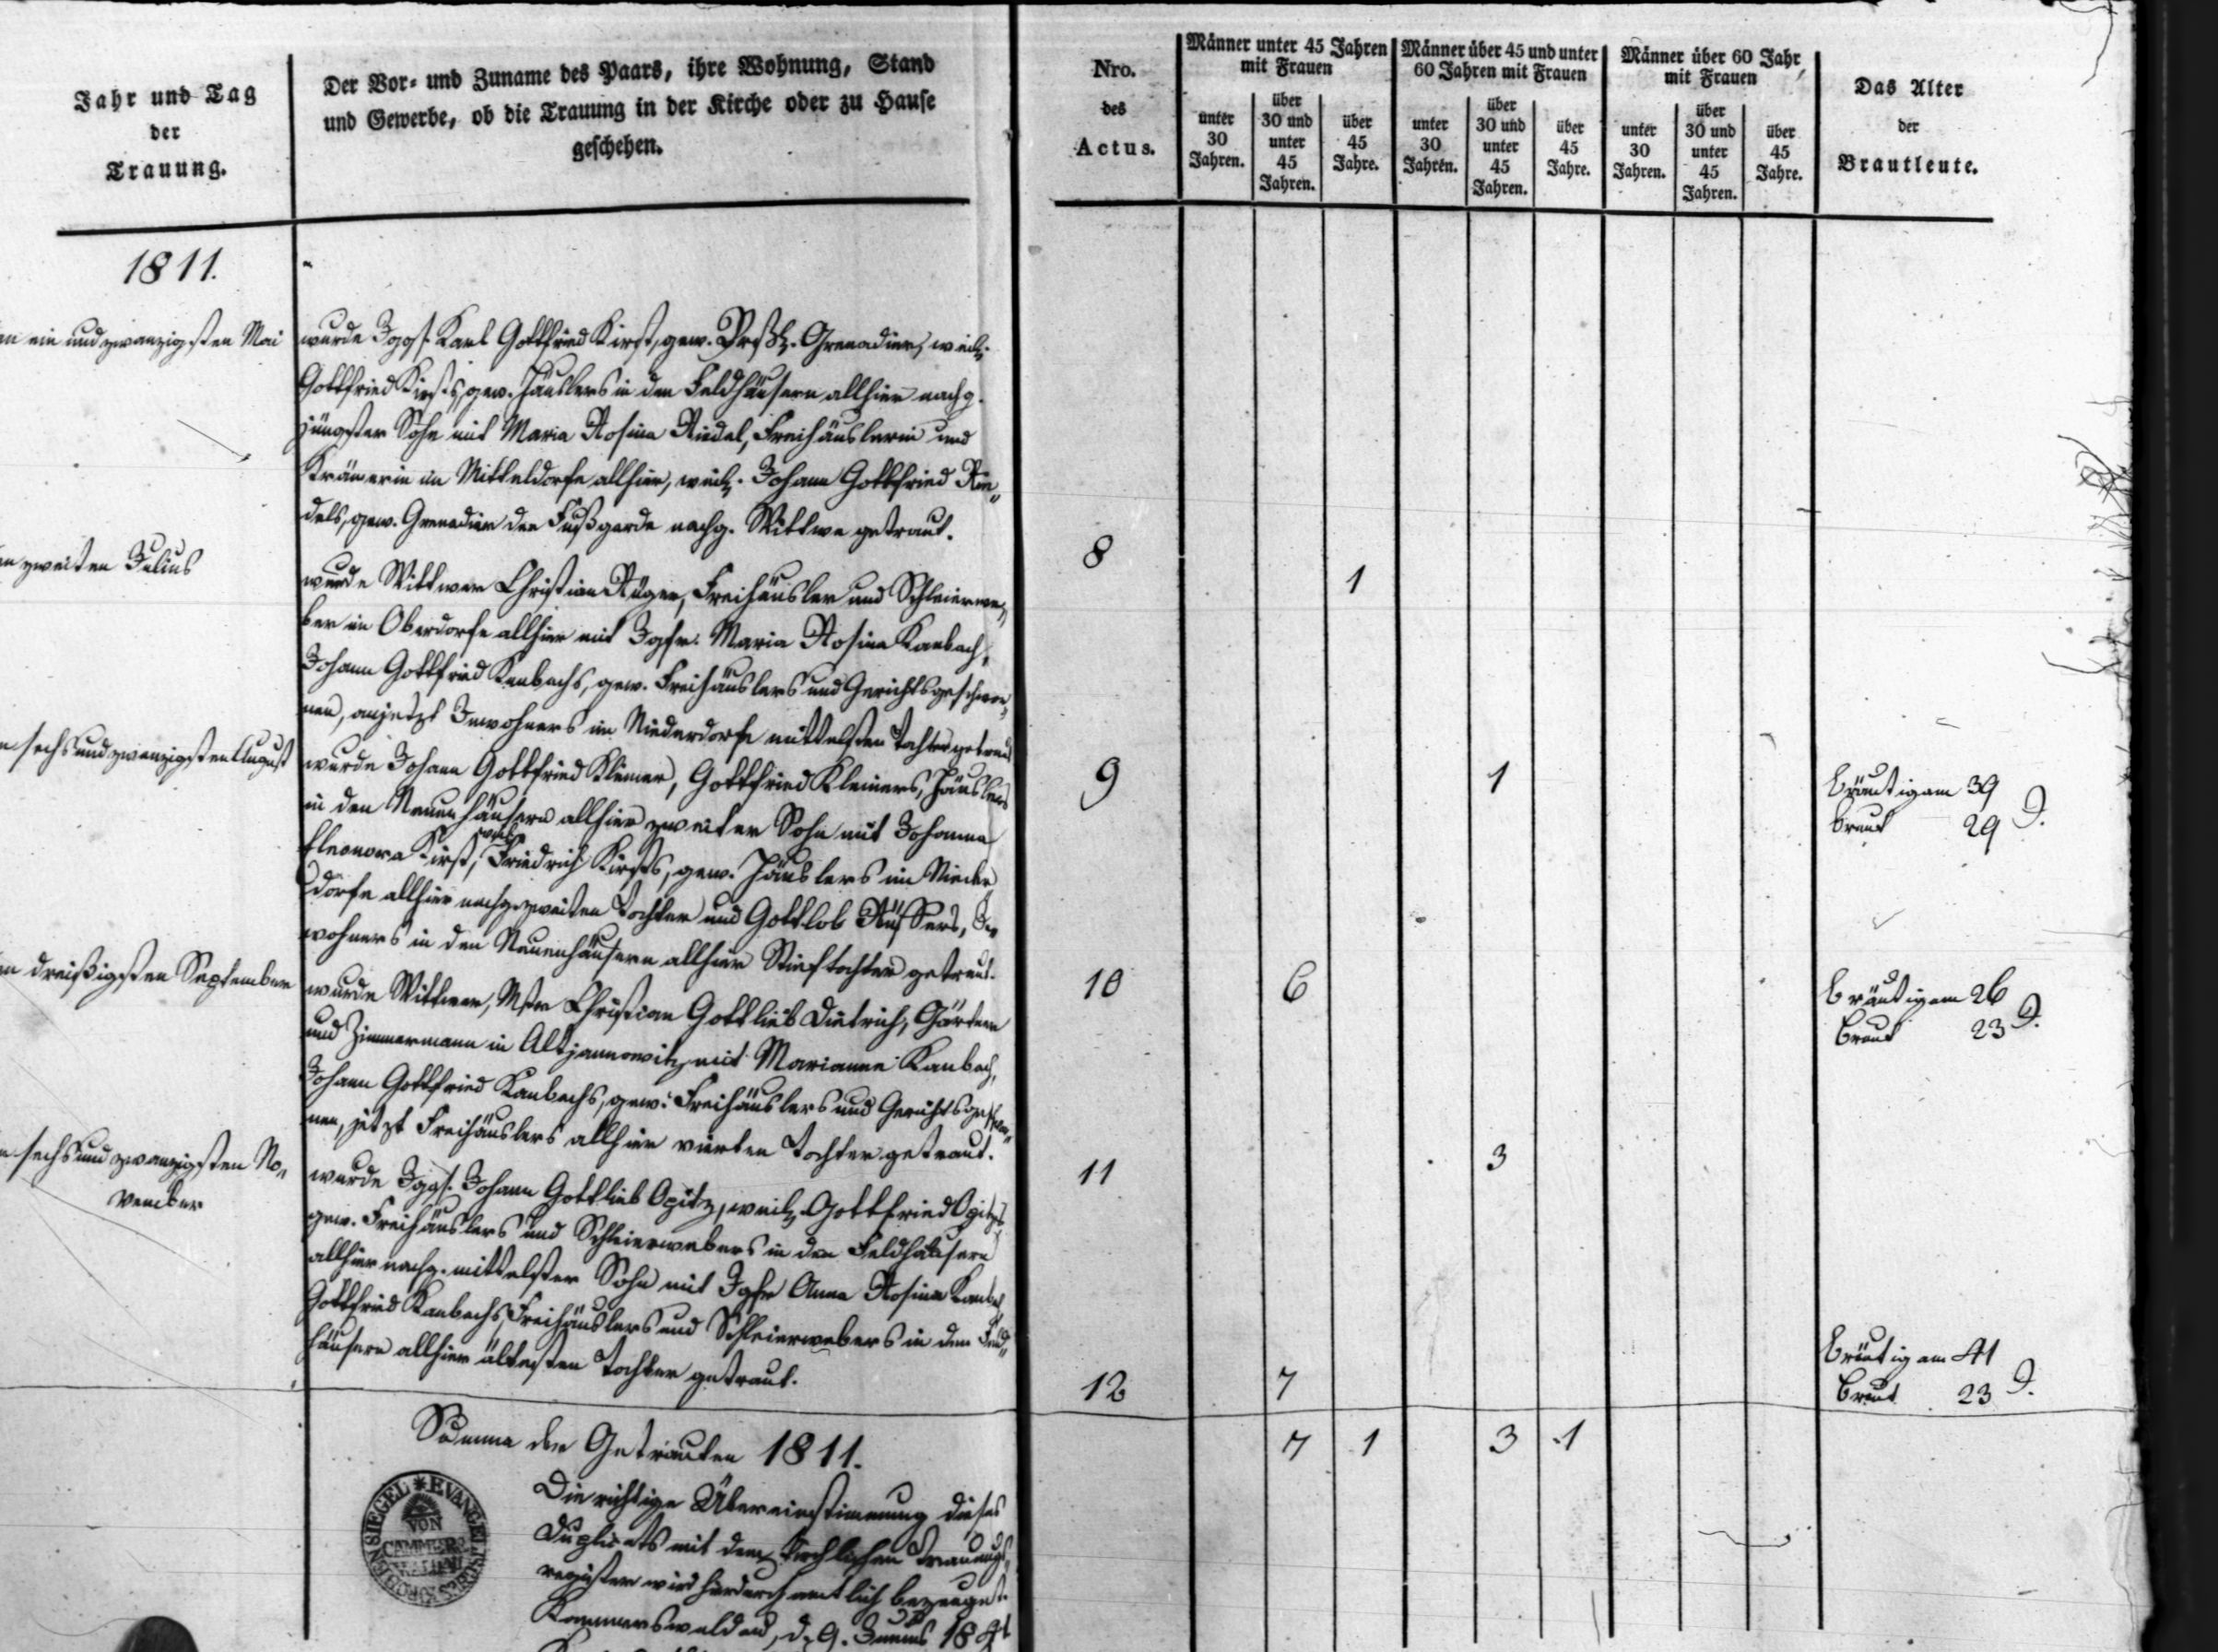 Jahr und Tag
der
Trauung.
Der Vor- und Zuname des Paars, ihre Wohnung, Stand
und Gewerbe, ob die Trauung in der Kirche oder zu Hause
geschehen.
Nro.
des
Actus.
Männer unter 45 Jahren
mit Frauen
unter
30
Jahren.
über
30 und
unter
45
Jahren.
über
45
Jahre.
Männer über 45 und unter
60 Jahren mit Frauen
unter
30
Jahren.
über
30 und
unter
45
Jahren.
über
45
Jahre.
Männer über 60 Jahr
mit Frauen
unter
30
Jahren.
über
30 und
unter
45
Jahren.
über
45
Jahre.
Das Alter
der
Brautleute.
1811.
ein und zwanzigsten Mai
wurde Jggs. Karl Gottfried Kirst, gew. Grenadier, weil.
Gottfried Kirsts, gew. Häuslers in den Feldhäusern allhier nachg.
jüngster Sohn mit Maria Rosina Riedel, Freihäuslerin und
Krämerin im Mitteldorfe allhier, weil. Johann Gottfried Rie„
dels, gew. Grenadier der Fußgarde nachg. Wittwe getraut.
8 1
zweiten Julius
wurde Wittwer Christian Rüger, Freihäusler und Schleierwe„
ber im Oberdorfe allhier mit Jgfr. Maria Rosina Kambach,
Johann Gottfried Kambachs, gew. Freihäuslers und Gerichtsgeschwor„
nen, anjetzt Inwohners im Niederdorfe mittelsten Tochter getraut
9 1
Bräutigam 39
Braut 29 J.
sechs und zwanzigsten August
wurde Johann Gottfried Kleiner, Gottfried Kleiners, Häuslers
in den Neuenhäusern allhier zweiter Sohn mit Johanna
Eleonora Kirst, weil. Friedrich Kirsts, gew. Häuslers im Nieder
dorfe allhier nachg. zweiten Tochter und Gottlob Rüffers, In
wohners in den Neuenhäusern allhier Stieftochter getraut.
10 6
Bräutigam 26
Braut 23 J.
dreißigsten September
wurde Wittwer, Mstr Christian Gottlieb Dietrich, Gärtner
und Zimmermann in Altjannowitz, mit Marianne Kambach,
Johann Gottfried Kambachs, gew. Freihäuslers und Gerichtsgeschwor„
nen, jetzt Freihäuslers allhier vierten Tochter getraut.
11 3
sechs und zwanzigsten No„
vember
wurde Jggs. Johann Gottlieb Opitz, weil. Gottfried Opitzs
gew. Freihäuslers und Schleierwebers in den Feldhäusern
allhier nachg. mittelster Sohn mit Jgfr Anna Rosina Kambach
Gottfried Kambachs, Freihäuslers und Schleierwebers in den Feld„
häusern allhier ältesten Tochter getraut.
12 7
Bräutigam 41
Braut 23 J.
Summa der Getrauten 1811.
7 1 3 1
Die richtige Übereinstimmung dieses
Duplicats mit dem kirchlichen Trauungs„
register wird hierdurch amtlich bezeugt.
Kammerswaldau, d. 9. 18
EVANGEL
KIRCHEN SIEGEL
VON
CAMMERS
WALDAU